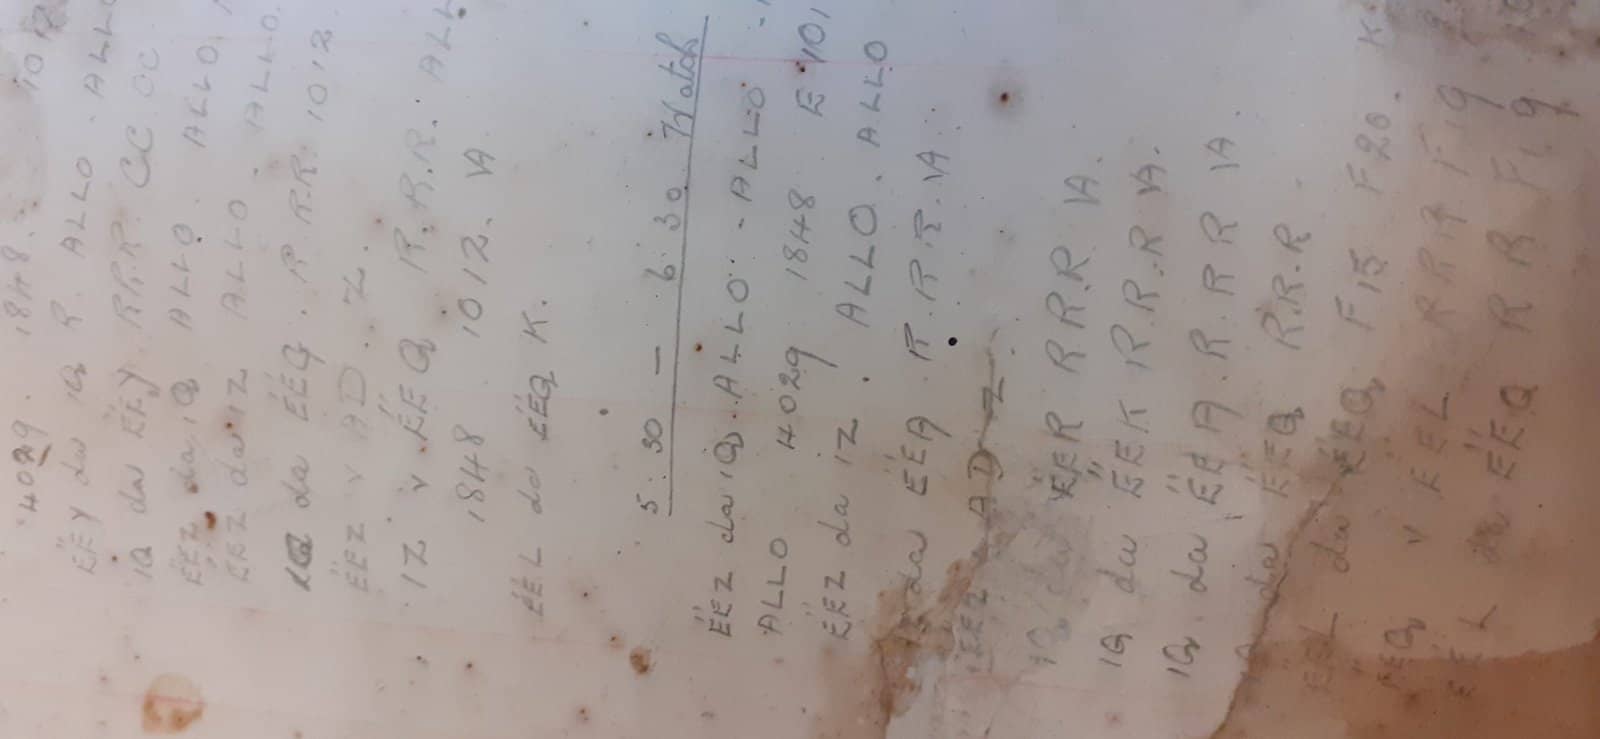 4029. 1848. 10
ËËY da 1Q R. ALLO. ALLO
1Q da ËËY. RRR. CC. OC
ËËZ da 1Q ALLO. ALLO.
ËËZ da 1Z ALLO. ALLO.
1Q da ËËQ. R. R.R. 1012.
ËËZ v AD. Z.
1Z v ËËQ R.R.R. ALL
1848 1012. VA
ËËL da ËËQ K.
5.30 — 6.30 Watch
ËËZ da 1Q. ALLO. - ALLO -
ALLO 4029 1848 E 101
ËËZ da 1Z. ALLO. ALLO
da ËËA. R. RR. VA.
ËËZ AD Z.
1Q da ËËR RR.R VA.
1Q da ËËK R.R.R VA.
1Q da ËËA R.R R VA.
1Q da ËËQ R.R.R.
ËËL da ËËQ F15 F20. K.
ËËQ v ËËL RRR F 9
ËËL da ËËQ R R F 9